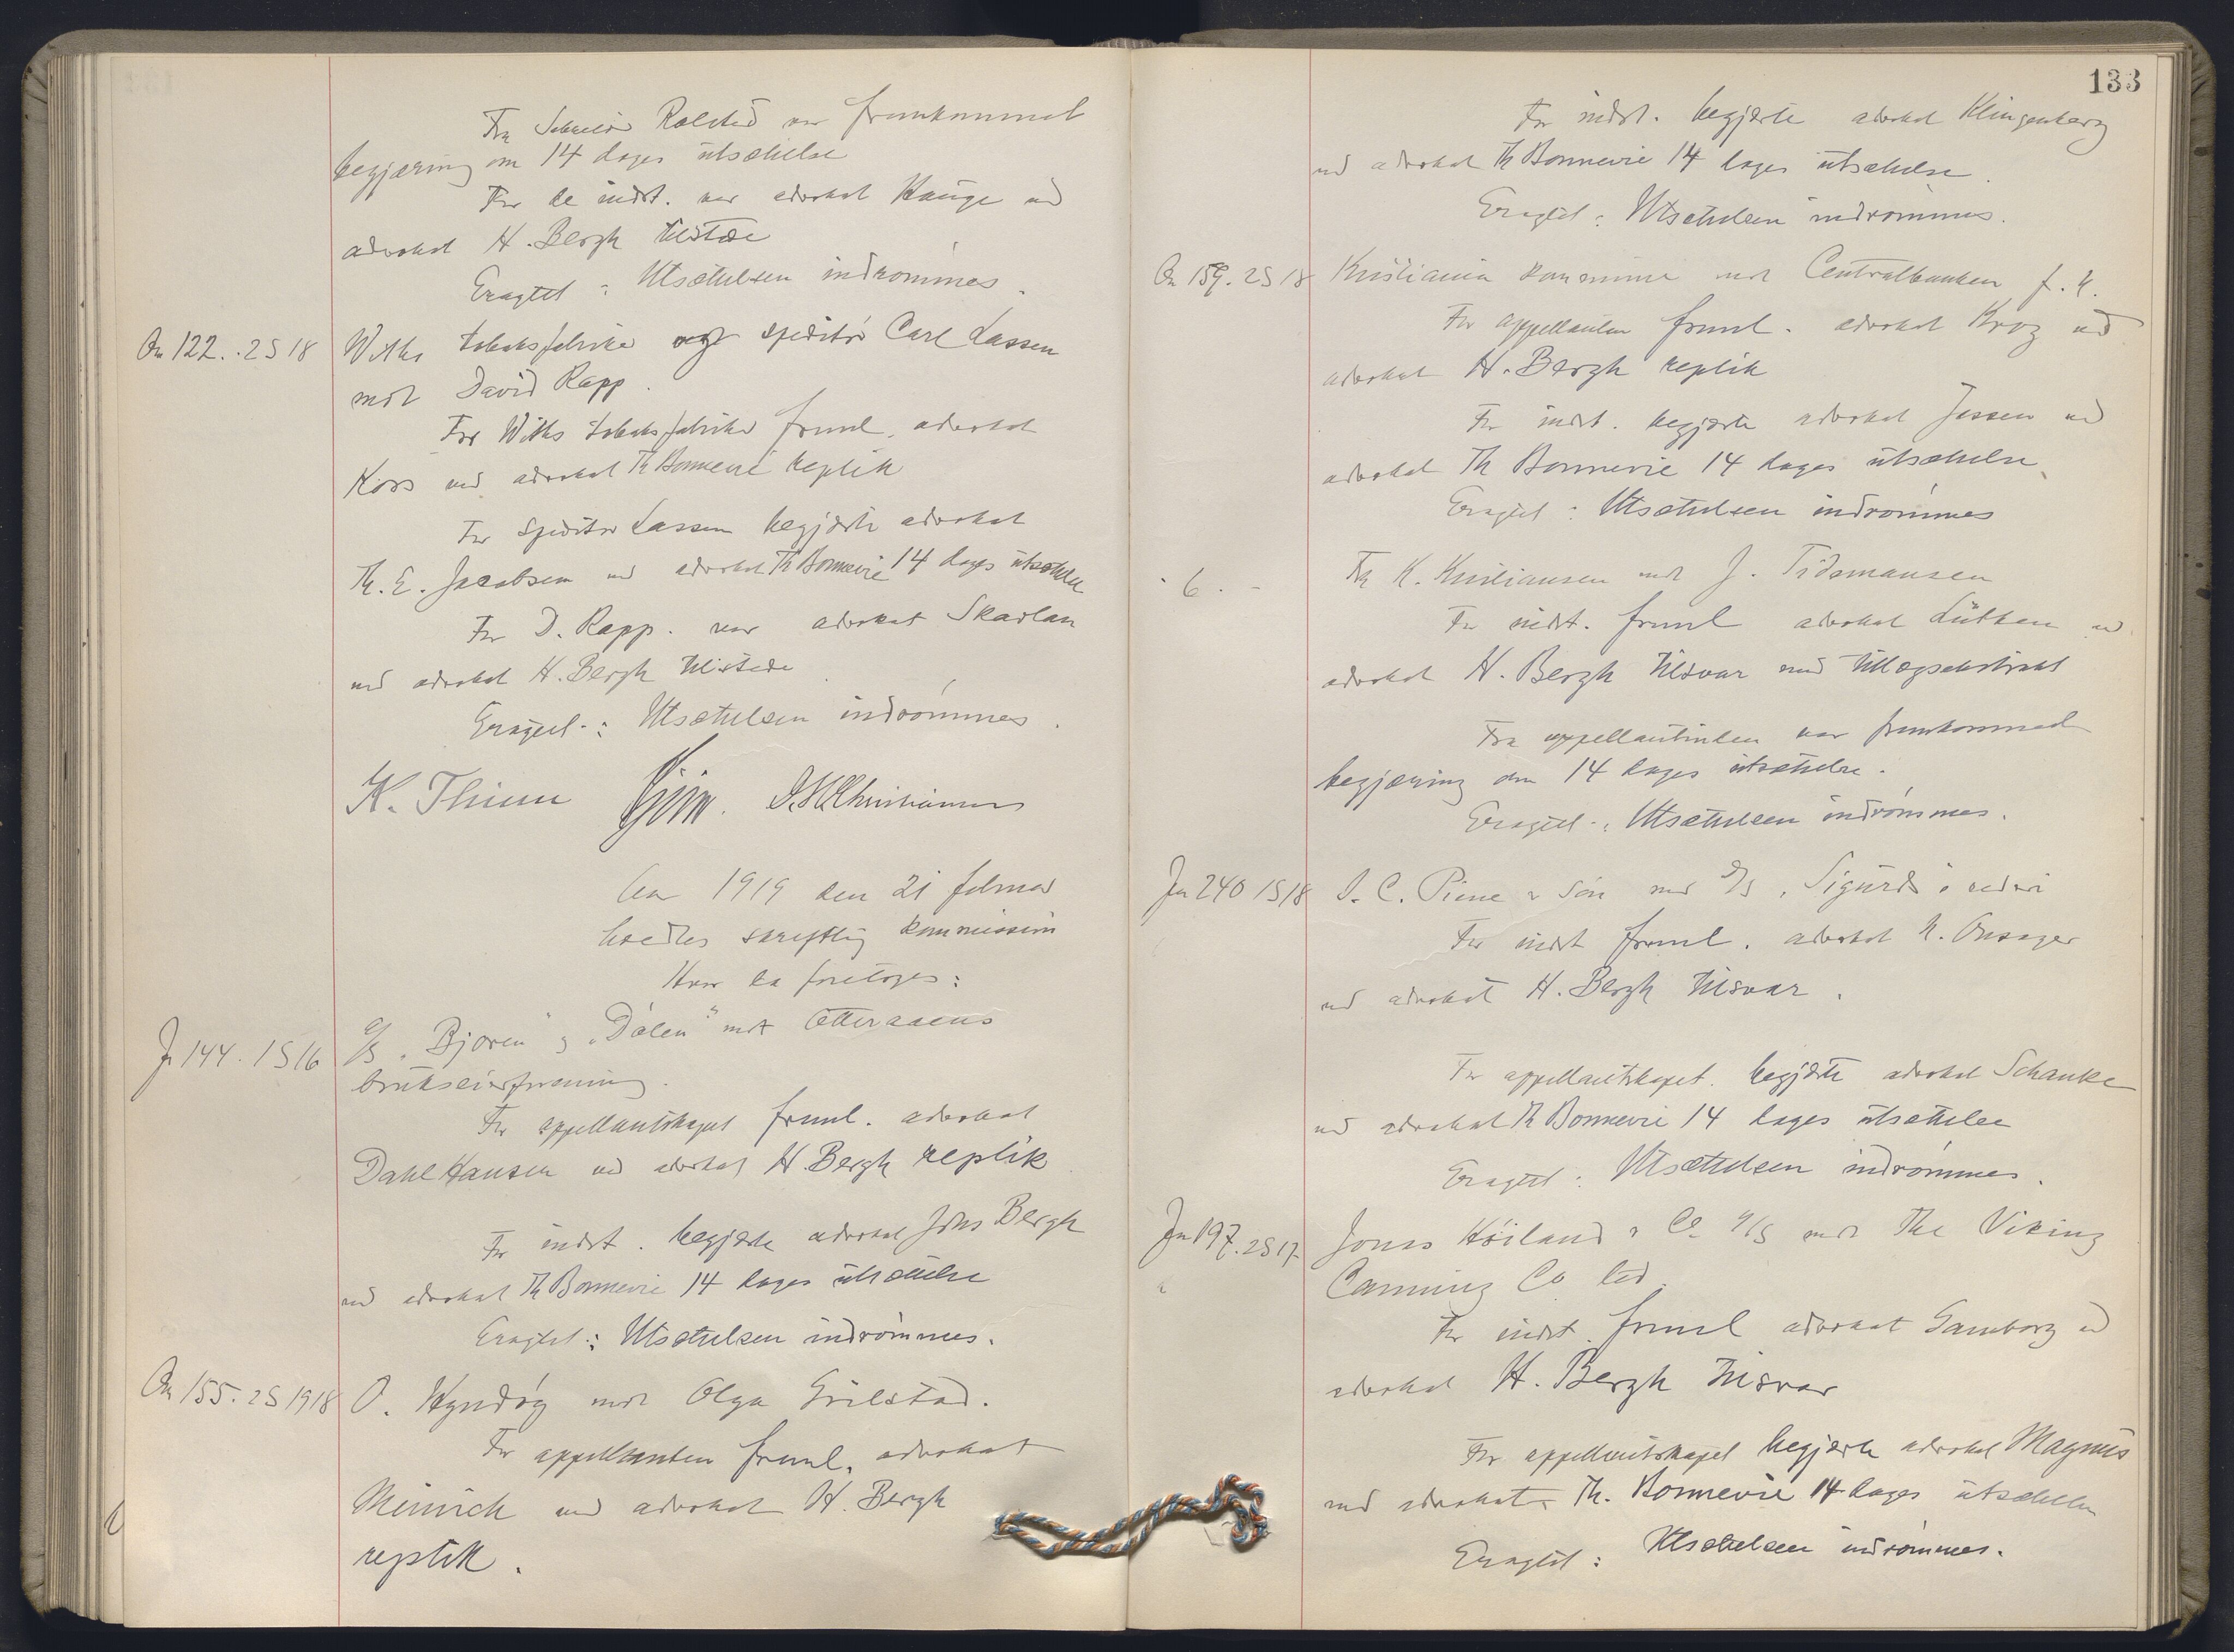 Fra Rolsted var fremkommet
begjæring om 14 dages utsættelse
For de indst. var advokat Hauge ved
advokat H. Bergh tilstede
Eragtet: Utsættelsen indrømmes.
An 122. 2S 18 Withs tobaksfabriker og speditør Carl Lassen
mot David Rapp.
For Withs tobaksfabriker freml. advokat
Koss ved advokat Th Bonnevie replik
For speditør Lassen begjærte advokat
Th. E. Jacobsen ved advokat Th Bonnevie 14 dages utsættelse
For D. Rapp. var advokat Skarlan
ved advokat H. Bergh tilstede
Eragtet: Utsættelsen indrømmes.
K. Thinn
Aar 1919 den 21 februar
holdtes skriftlig kommission
Hvor da foretoges:
J 144. 1S16 A/S "Bjoren" og "Dölen" mot Otteraaens
brukseierforening.
For appellantskapet freml. advokat
Dahl Hansen ved advokat H. Bergh replik
For indst. begjærte advokat Johs Bergh
ved advokat Th Bonnevie 14 dages utsættelse
Eragtet: Utsættelsen indrømmes.
An 155. 2S 1918 O. Hyndöy mot Olga Grilstad.
For appellanten freml. advokat
Minnich ved advokat H. Bergh
replik.
133
For indst. begjærte advokat Klingenberg
ved advokat Th Bonnevie 14 dages utsættelse.
Eragtet: Utsættelsen indrømmes.
An 159. 2S 18 Kristiania kommune mot Centralbanken f. N.
For appellanten freml. advokat Krog ved
advokat H. Bergh replik
For indst. begjærte advokat Jessen ved
advokat Th Bonnevie 14 dages utsættelse
Eragtet: Utsættelsen indrømmes
6. - K. Kristiansen mot J. Tidemansen
For indst. freml advokat Lütken ved
advokat H. Bergh tilsvar med tillægsekstrakt
Fra appellantinden var fremkommed
begjæring om 14 dages utsættelse.
Eragtet: Utsættelsen indrømmes.
Jn 240 1S18 I. C. Piene & Søn mot D/S "Sigurds" rederi
For indst freml. advokat N. Onsager
ved advokat H. Bergh tilsvar.
For appellantskapet. begjærte advokat Schanke
ved advokat Th Bonnevie 14 dages utsættelse
Eragtet: Utsættelsen indrømmes.
Jn 197. 2S17. Jonas Høiland & Co A/S mot The Viking
Canning Co ltd.
For indst. freml advokat Gamborg ved
advokat H. Bergh tilsvar
For appellantskapet begjærte advokat Magnus
ved advokat Th. Bonnevie 14 dages utsættelse
Eragtet: Utsættelsen indrømmes.